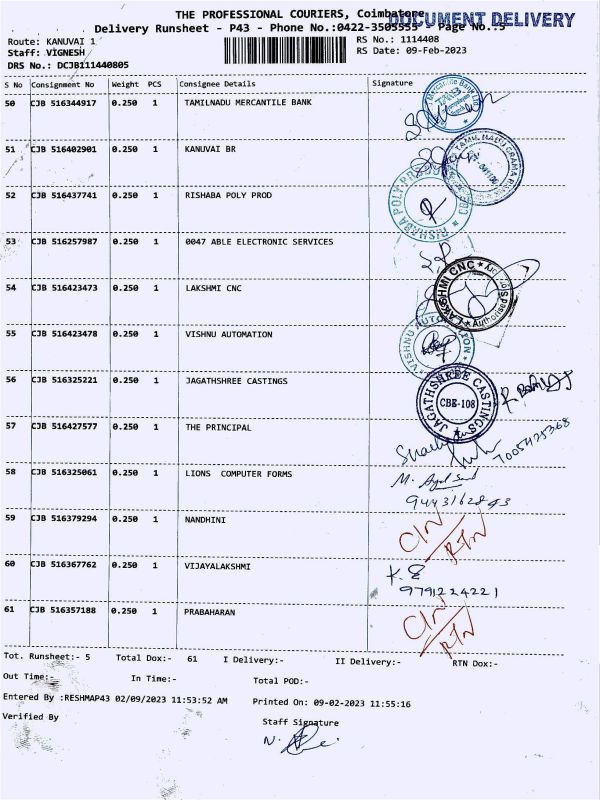 THE PROFESSIONAL COURIERS, Coimbatore
DOCUMENT DELIVERY
Delivery Runsheet - P43 - Phone No.:0422-3505555 Page No.:5
Route: KANUVAI 1
RS No.: 1114408
Staff: VIGNESH
RS Date: 09-Feb-2023
DRS No.: DCJB111440805
S No Consignment No Weight PCS Consignee Details Signature
50 CJB 516344917 0.250 1 TAMILNADU MERCANTILE BANK
51 CJB 516402901 0.250 1 KANUVAI BR
52 CJB 516437741 0.250 1 RISHABA POLY PROD
RISHABA POLY
53 CJB 516257987 0.250 1 0047 ABLE ELECTRONIC SERVICES
54 CJB 516423473 0.250 1 LAKSHMI CNC
LAKSHMI CNC
55 CJB 516423478 0.250 1 VISHNU AUTOMATION
VISHNU AUTOMATION
56 CJB 516325221 0.250 1 JAGATHSHREE CASTINGS
JAGATHSHREE CASTINGS
CBE-108
57 CJB 516427577 0.250 1 THE PRINCIPAL
58 CJB 516325061 0.250 1 LIONS COMPUTER FORMS
59 CJB 516379294 0.250 1 NANDHINI
RTN
60 CJB 516367762 0.250 1 VIJAYALAKSHMI
9791224221
61 CJB 516357188 0.250 1 PRABAHARAN
RTN
Tot. Runsheet:- 5 Total Dox:- 61 I Delivery:- II Delivery:- RTN Dox:-
Out Time:- In Time:- Total POD:-
Entered By :RESHMAP43 02/09/2023 11:53:52 AM Printed On: 09-02-2023 11:55:16
Verified By
Staff Signature